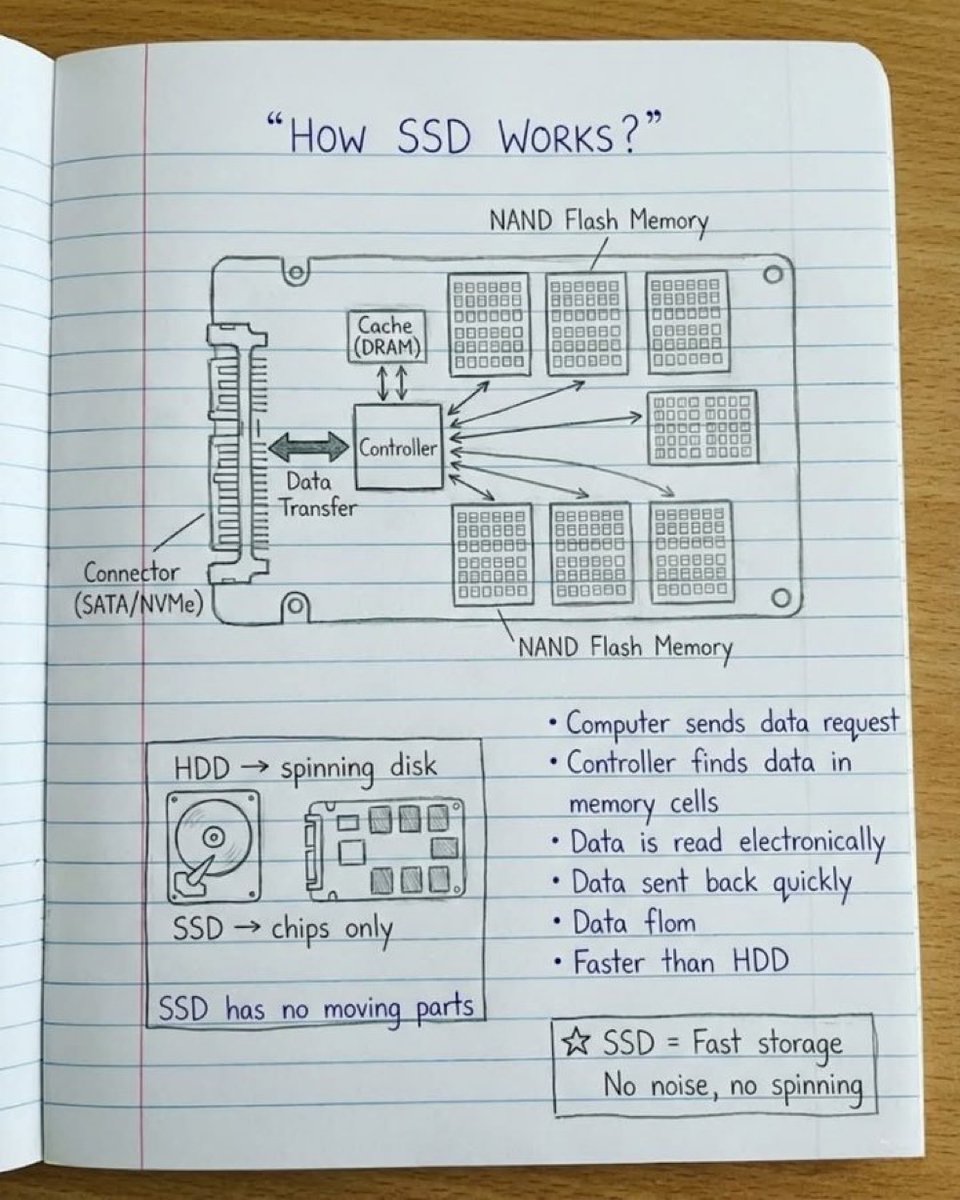 “HOW SSD WORKS?”
NAND Flash Memory
Cache
(DRAM)
Controller
Data
Transfer
Connector
(SATA/NVMe)
NAND Flash Memory
HDD → spinning disk
SSD → chips only
SSD has no moving parts
• Computer sends data request
• Controller finds data in
memory cells
• Data is read electronically
• Data sent back quickly
• Data flom
• Faster than HDD
☆ SSD = Fast storage
No noise, no spinning